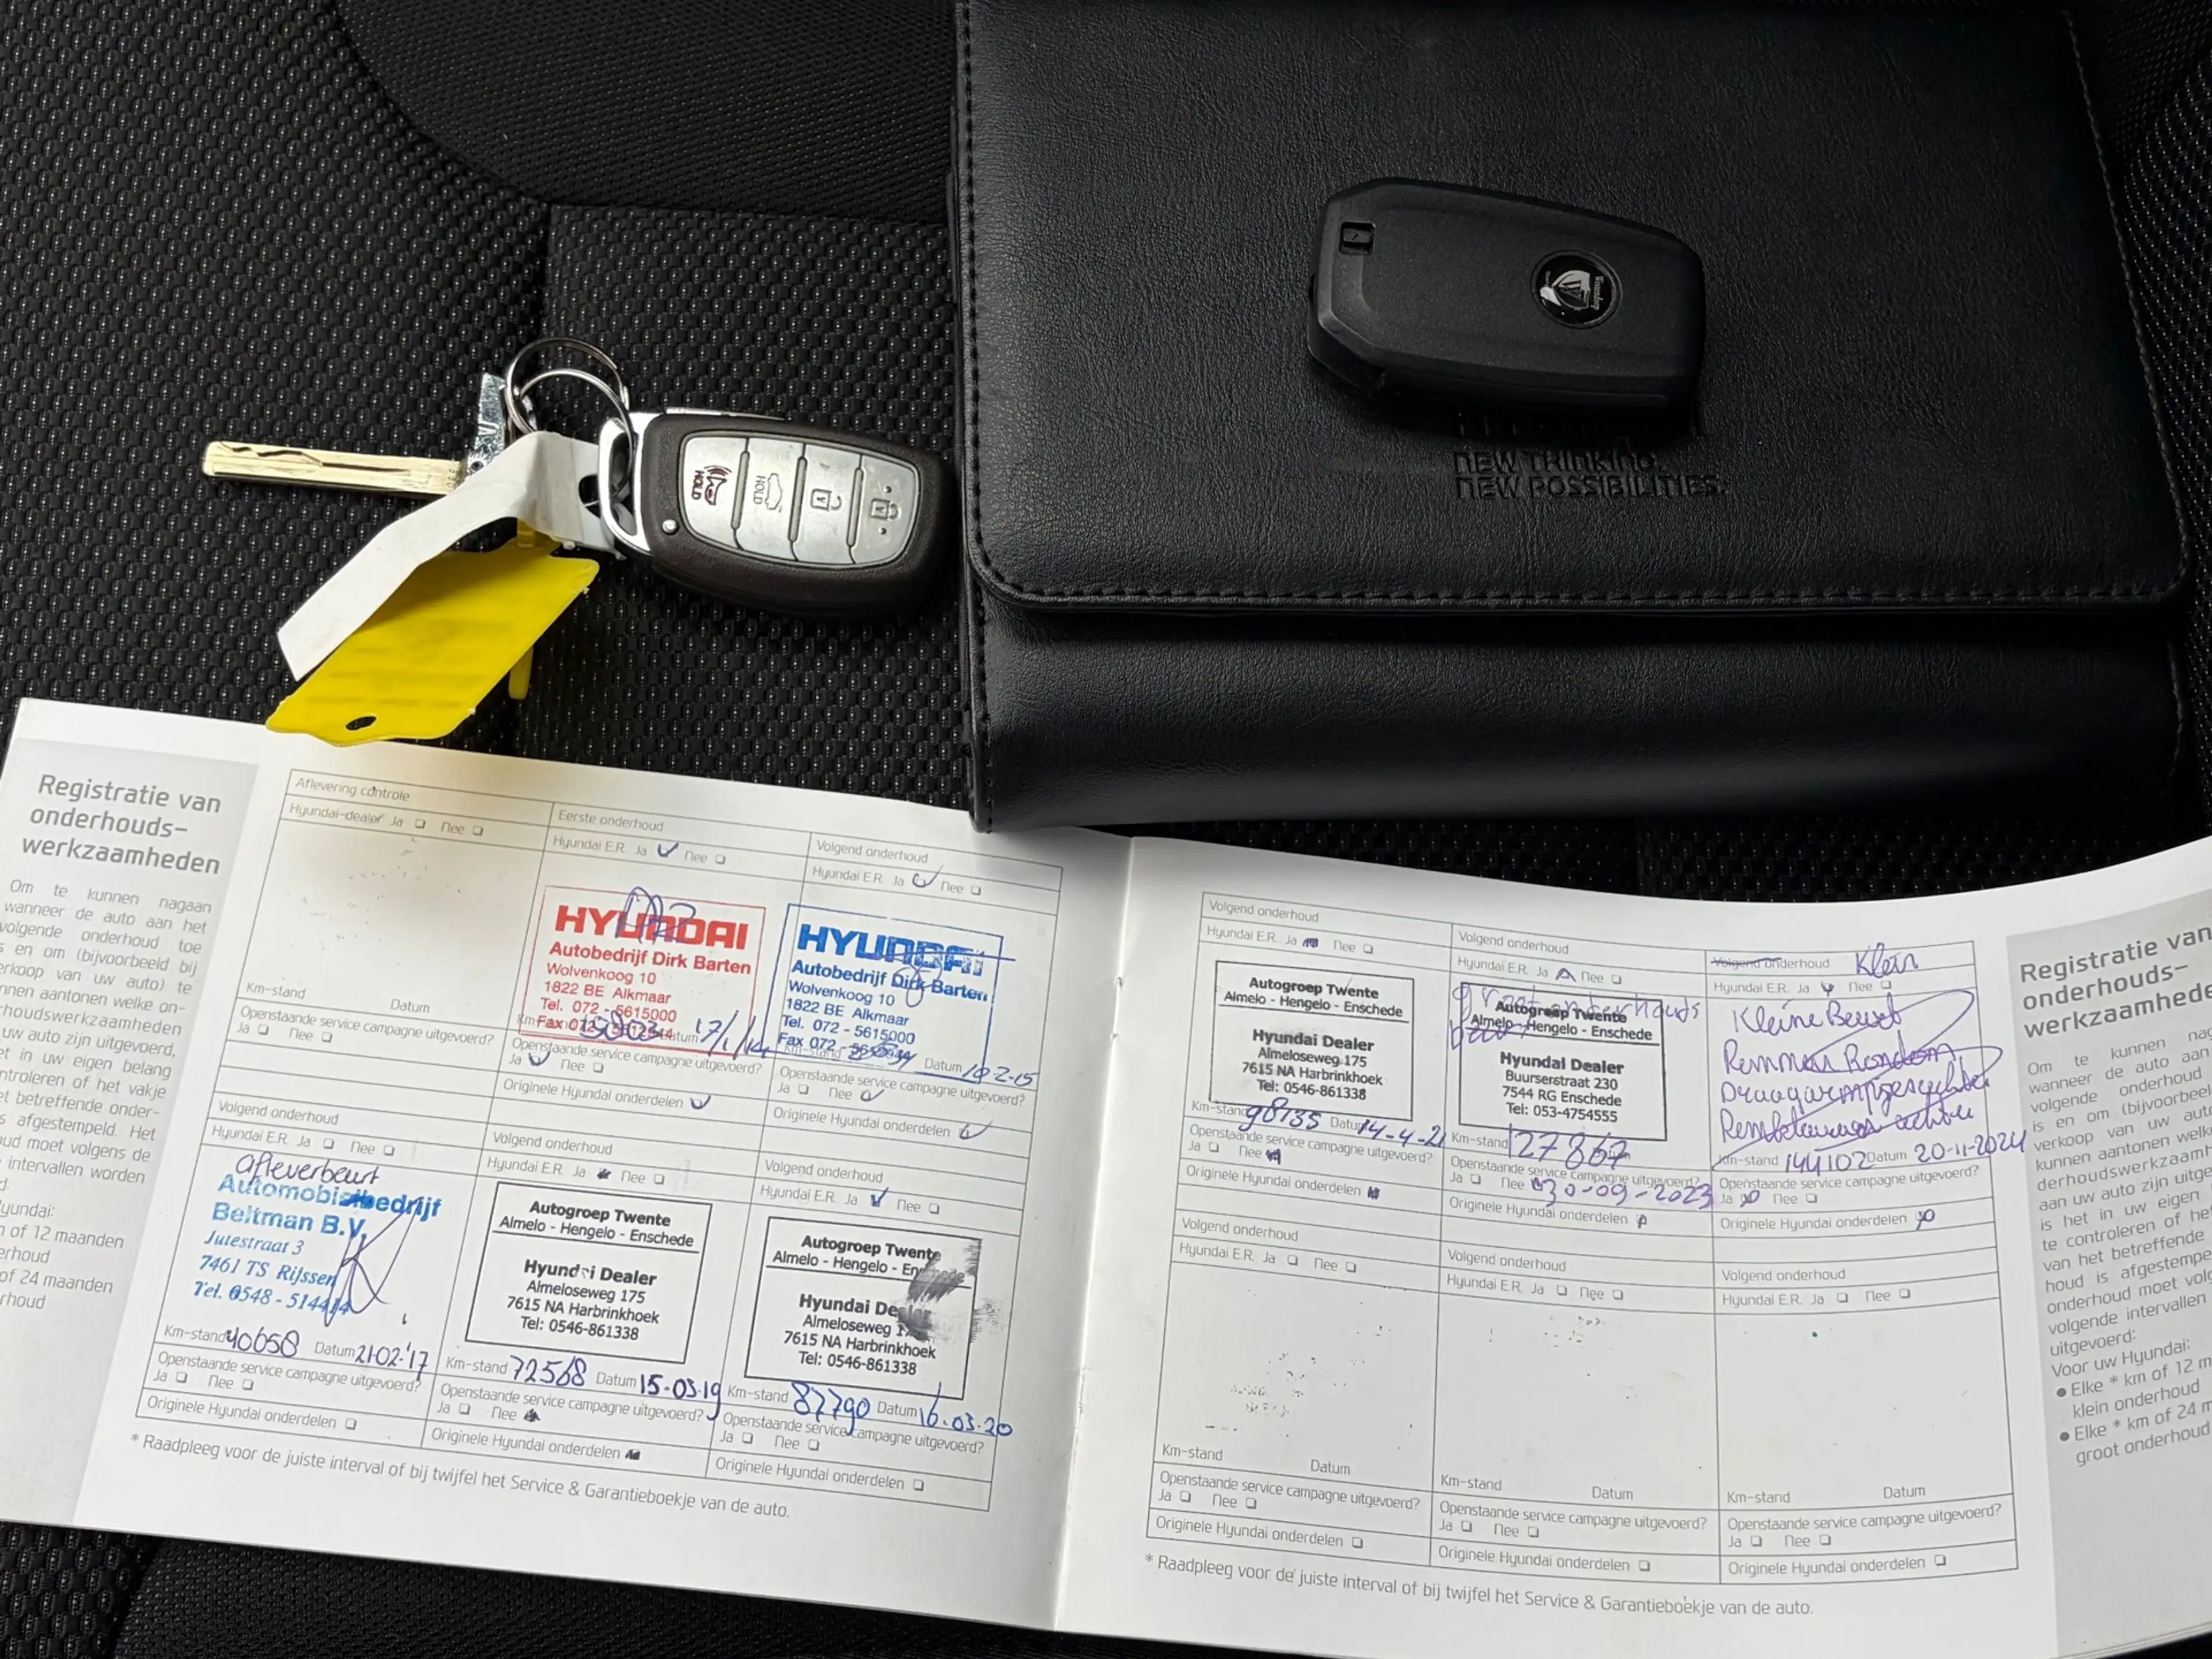 HOLD
HOLD
NEW THINKING.
NEW POSSIBILITIES.
Registratie van
onderhouds-
werkzaamheden
Om te kunnen nagaan
wanneer de auto aan het
volgende onderhoud toe
en om (bijvoorbeeld bij
verkoop van uw auto) te
aantonen welke on-
uw auto zijn uitgevoerd,
et in uw eigen belang
of het vakje
et betreffende onder-
is afgestempeld. Het
moet volgens de
intervallen worden
of 12 maanden
of 24 maanden
Aflevering controle
Hyundai-dealer Ja Nee
Km-stand Datum
Openstaande service campagne uitgevoerd?
Ja Nee
Eerste onderhoud
Hyundai E.R. Ja Nee
HYUNDAI
Autobedrijf Dirk Barten
Wolvenkoog 10
1822 BE Alkmaar
Tel. 072 - 5615000
Fax 072
Datum 17/1/14
Openstaande service campagne uitgevoerd?
Ja Nee
Originele Hyundai onderdelen
Volgend onderhoud
Hyundai E.R. Ja Nee
HYUNDAI
Autobedrijf Dirk Barten
Wolvenkoog 10
1822 BE Alkmaar
Tel. 072 - 5615000
Fax 072
Km-stand Datum 10-2-15
Openstaande service campagne uitgevoerd?
Ja Nee
Originele Hyundai onderdelen
Volgend onderhoud
Hyundai E.R. Ja Nee
afleverbeurt
Automobielbedrijf
Beltman B.V.
Julestraat 3
7461 TS Rijssen
Tel. 0548 - 514414
Km-stand 40658 Datum 21-02-'17
Openstaande service campagne uitgevoerd?
Ja Nee
Originele Hyundai onderdelen
Volgend onderhoud
Hyundai E.R. Ja Nee
Autogroep Twente
Almelo - Hengelo - Enschede
Hyundai Dealer
Almeloseweg 175
7615 NA Harbrinkhoek
Tel: 0546-861338
Km-stand 72568 Datum 15-03-19
Openstaande service campagne uitgevoerd?
Ja Nee
Originele Hyundai onderdelen
Volgend onderhoud
Hyundai E.R. Ja Nee
Autogroep Twente
Almelo - Hengelo - Enschede
Hyundai Dealer
Almeloseweg
7615 NA Harbrinkhoek
Tel: 0546-861338
Km-stand 87790 Datum 16-03-20
Openstaande service campagne uitgevoerd?
Ja Nee
Originele Hyundai onderdelen
* Raadpleeg voor de juiste interval of bij twijfel het Service & Garantieboekje van de auto.
Volgend onderhoud
Hyundai E.R. Ja Nee
Autogroep Twente
Almelo - Hengelo - Enschede
Hyundai Dealer
Almeloseweg 175
7615 NA Harbrinkhoek
Tel: 0546-861338
Km-stand 98135 Datum 14-4-21
Openstaande service campagne uitgevoerd?
Ja Nee
Originele Hyundai onderdelen
Volgend onderhoud
Hyundai E.R. Ja Nee
groot onderhouds
beurt
Autogroep Twente
Almelo - Hengelo - Enschede
Hyundai Dealer
Buurserstraat 230
7544 RG Enschede
Tel: 053-4754555
Km-stand 127867
Openstaande service campagne uitgevoerd?
Ja Nee 30-09-2023
Originele Hyundai onderdelen
Volgend onderhoud Klein
Hyundai E.R. Ja Nee
Kleine Beurt
Remmen Rondom
Km-stand 144102 Datum 20-11-2024
Openstaande service campagne uitgevoerd?
Ja Nee
Originele Hyundai onderdelen
Volgend onderhoud
Hyundai E.R. Ja Nee
Km-stand Datum
Openstaande service campagne uitgevoerd?
Ja Nee
Originele Hyundai onderdelen
Volgend onderhoud
Hyundai E.R. Ja Nee
Km-stand Datum
Openstaande service campagne uitgevoerd?
Ja Nee
Originele Hyundai onderdelen
Volgend onderhoud
Hyundai E.R. Ja Nee
Km-stand Datum
Openstaande service campagne uitgevoerd?
Ja Nee
Originele Hyundai onderdelen
* Raadpleeg voor de juiste interval of bij twijfel het Service & Garantieboekje van de auto.
Registratie van
onderhouds-
werkzaamhede
Om te kunnen
wanneer de auto aan
volgende onderhoud
is en om (bijvoorbeel
verkoop van uw
kunnen aantonen welk
aan uw auto zijn
is het in uw eigen
te controleren of het
van het betreffende
houd is afgestempe
onderhoud moet
volgende intervallen
uitgevoerd:
Voor uw Hyundai:
● Elke * km of 12 m
klein onderhoud
● Elke * km of 24 m
groot onderhoud